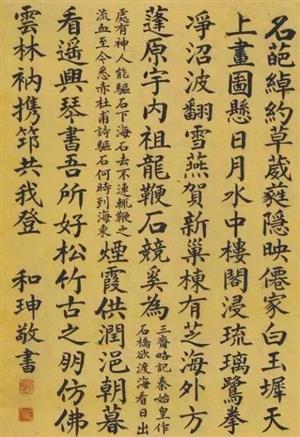 名葩綽約草葳蕤隱映僊家白玉墀天
上畫圖懸日月水中樓閣浸琉璃鷺拳
凈沼波翻雪燕賀新巢棟有芝海外方
蓬原宇内祖龍鞭石競奚為
三齊略記秦始皇作
石橋欲渡海看日出
處有神人能驅石下海石去不速輒鞭之
流血至今悉赤杜甫詩驅石何時到海東
煙霞供潤浥朝暮
看遥興琴書吾所好松竹古之朋仿佛
雲林衲携筇共我登
和珅敬書